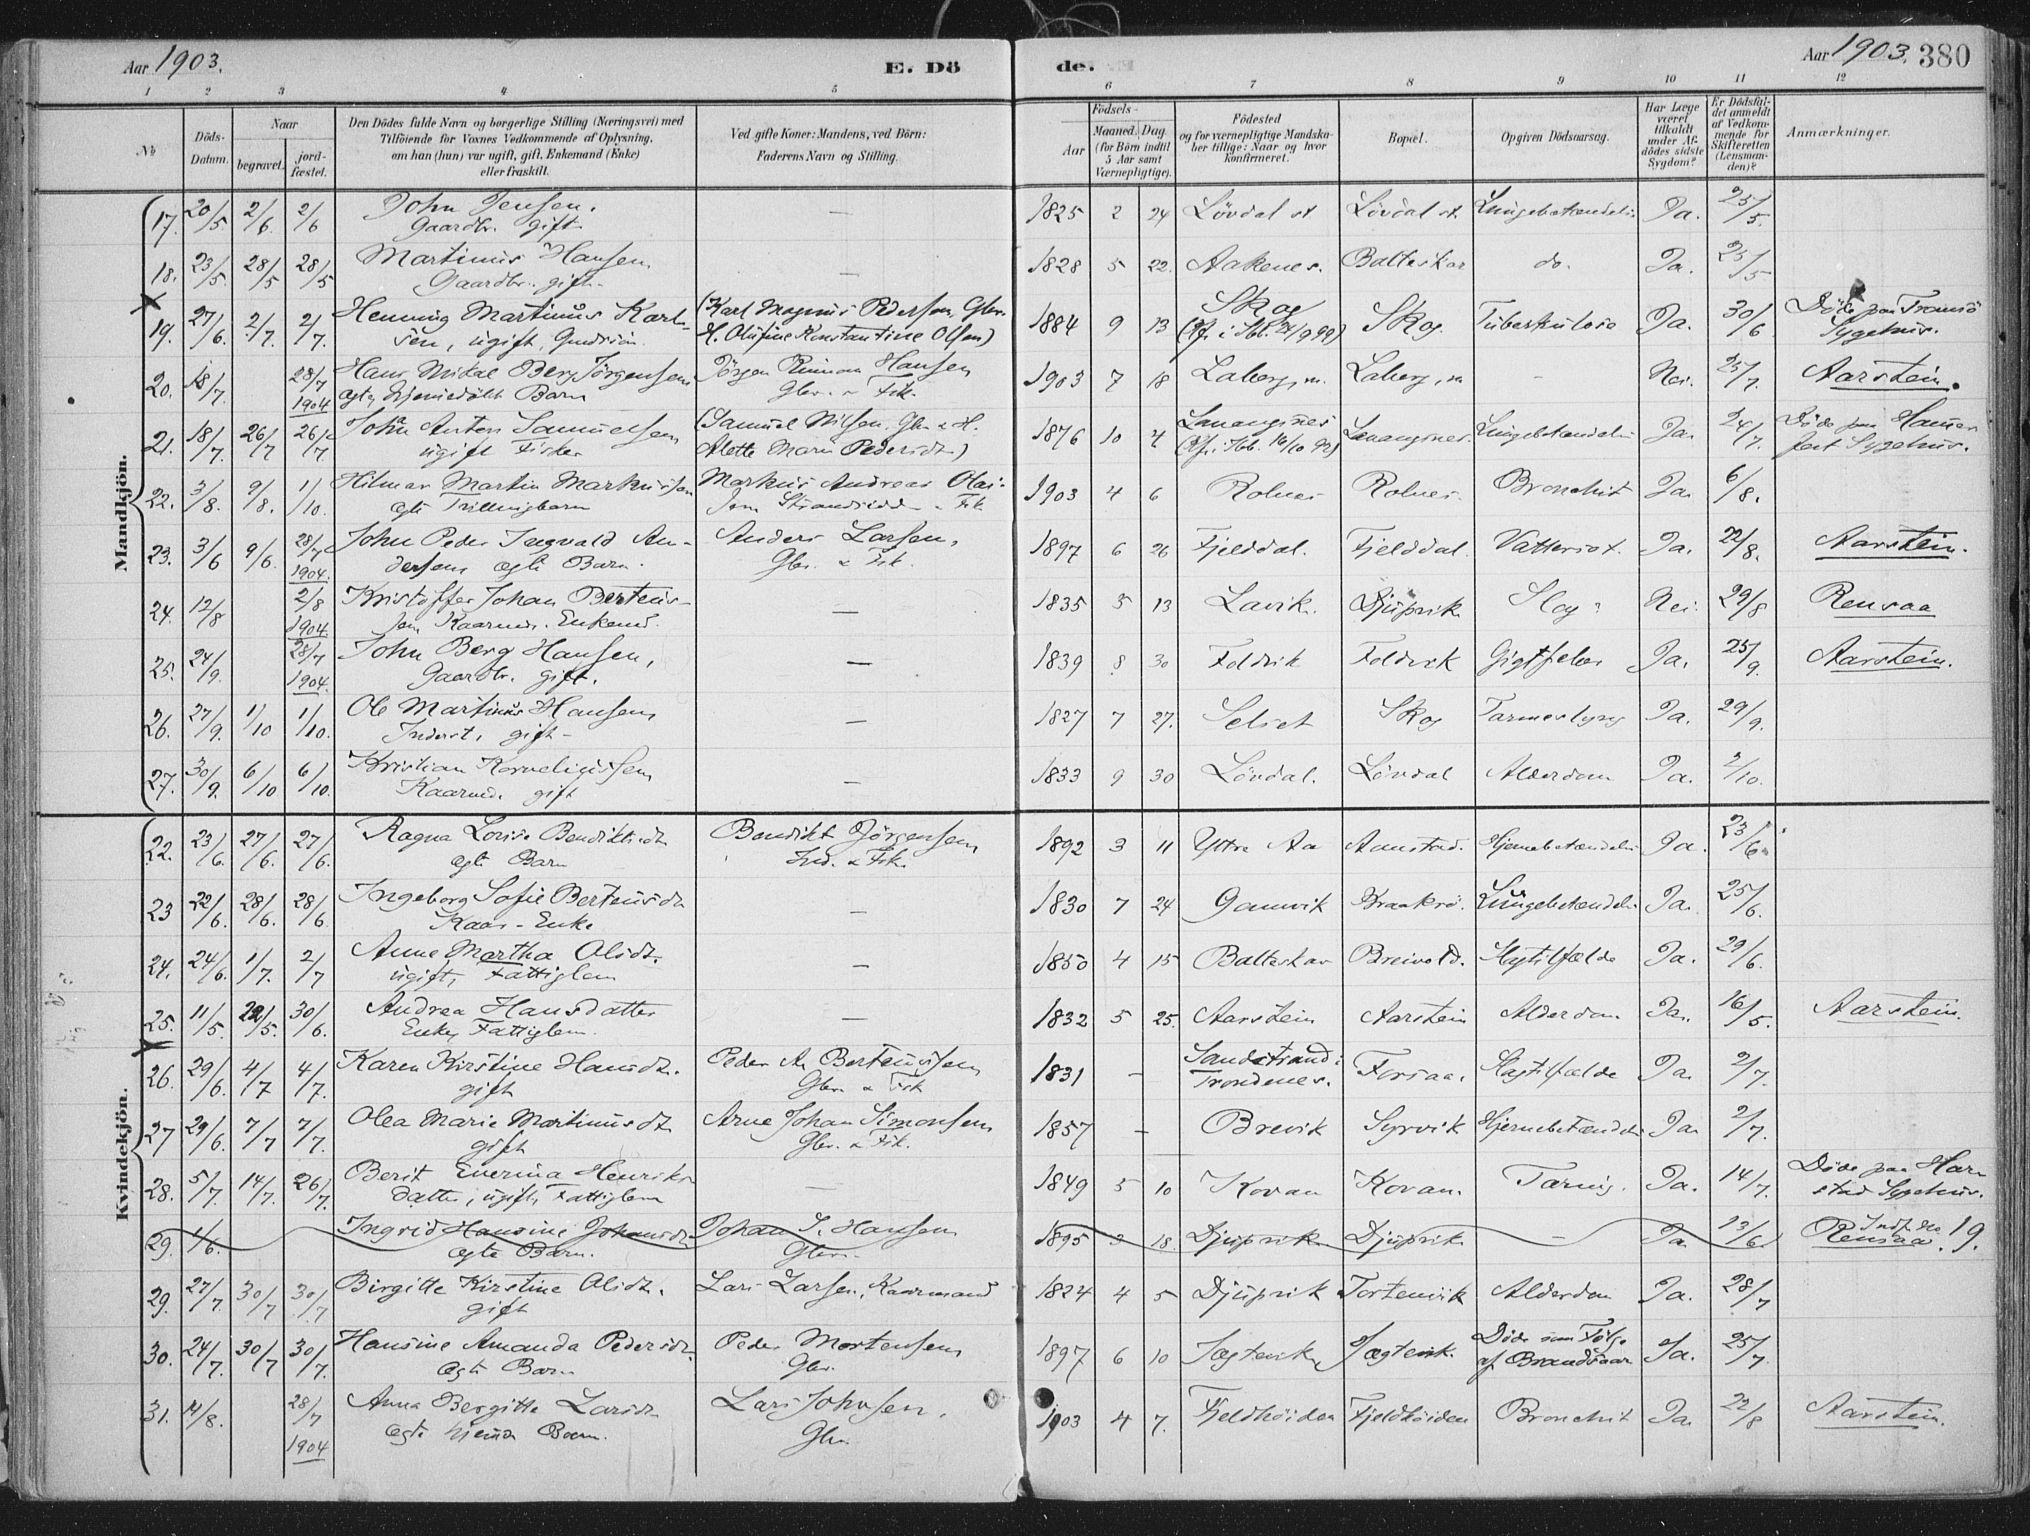 Aar 1903.
E. Dö
de.
Aar 1903. 380
1 2 3 4 5 6 7 8 9 10 11 12
No
Döds-Datum.
Naar
begravet.
jord-fæstet.
Den Dödes fulde Navn og borgerlige Stilling (Næringsvei) med
Tilföiende for Voxnes Vedkommende af Oplysning,
om han (hun) var ugift, gift, Enkemand (Enke)
eller fraskilt.
Ved gifte Koner: Mandens, ved Börn:
Faderens Navn og Stilling.
Födsels-
Aar
Maaned. Dag.
(for Börn indtil
5 Aar samt
Værnepligtige).
Födested
og for værnepligtige Mandska-
ber tillige: Naar og hvor
konfirmeret.
Bopæl.
Opgiven Dödsaarsag.
Har Læge
været
tilkaldt
under Af-
dödes sidste
Sygdom?
Er Dödsfal-
det anmeldt
af Vedkom-
mende for
Skifteretten
(Lensman-
den)?
Anmærkninger.
Mandkjön.
17. 20/5 2/6 2/6 John Jensen, — 1825 2 24 Lövdal st Lövdal st. Lungebetændelse Ja. 25/5.
Gaardbr. gift
18. 23/5 28/5 28/5 Martinus Hansen — 1828 5 22. Aakenes. Balteskar do. Ja. 25/5
Gaardbr. gift
19. 27/6. 2/7. 2/7. Henning Martinus Karl- (Karl Magnus Pedersen, Gbr. 1884 9 13 Skog Skog. Tuberkulose Ja. 30/6 Döde paa Tromsö
sen, ugift, H. Olufine Konstantine Olsen) Sygehus.
20. 18/7. 28/7 1904 Hans Mikal Berg Jörgensen Jörgen Hansen 1903 7 18 Laberg, m. Laberg, m - Nei. 25/7. Aarstein.
ægte hjemmedöbt Barn Gbr. & Fisk.
21. 18/7. 26/7 26/7 John Anton Samuelsen (Samuel Nilsen, Gbr & H. 1876 10 4 Lavangsnes Lavangsnes. Lungebetændelse Ja. 24/7. Döde paa Hammer
ugift Fisker Alette Marie Pedersdt.) fest Sygehus.
22. 3/8. 9/8. 1/10. Hilmar Martin Markussen Markus Andreas Olai- 1903 4 6 Rolnes Rolnes Bronchit Ja. 6/8.
ægte Trillingbarn sen Strandsidd. & Fisk
23. 3/6 9/6. 28/7 1904. John Peder Ingvald An- Anders Larsen, 1897 6 26 Fjelddal. Fjelddal. Vattersot. Ja. 22/8. Aarstein.
dersen ægte Barn. Gbr. & Fisk.
24. 12/8 2/8 1904. Kristoffer Johan Berteus- — 1835 5 13 Lavik. Djupvik Slag Nei. 29/8 Rensaa
sen Kaarmd. Enkemd.
25. 24/9. 28/7 1904. John Berg Hansen, — 1839 8 30 Foldvik Foldvik Gigtfeber Ja. 25/9. Aarstein.
Gaardbr. gift.
26. 27/9. 1/10 1/10. Ole Martinus Hansen — 1827 7 27. Selset Skog Tarmeslyng Ja. 29/9.
Inderst, gift
27. 30/9. 6/10 6/10. Kristian Korneliussen — 1833 9 30 Lövdal. Lövdal Alderdom Ja. 2/10.
Kaarmd. gift
Kvindekjön.
22. 23/6. 27/6. 27/6. Ragna Lovise Bendiktsdt. Bendikt Jörgensen 1892 3 11 Yttre Aa Aanstad. Hjernebetændelse Ja. 23/6.
ægte Barn Ind. & Fisk.
23 22/6. 28/6. 28/6. Ingeborg Sofie Berteusdt. — 1830 7 24 Gamvik Kraakrö. Lungebetændelse Ja. 25/6.
Kaar-Enke
24. 24/6. 1/7. 2/7 Anne Martha Olsdt. — 1850 4 15 Balteskar Breivold. Slagtilfælde Ja. 29/6.
ugift, Fattiglem
25. 11/5. 22/5. 30/6. Andrea Hansdatter — 1832 5 25. Aarstein Aarstein Alderdom Ja. 16/5. Aarstein.
Enke, Fattiglem.
26. 29/6. 4/7 4/7. Karen Kirstine Hansdt. Peder A. Berteussen 1831 - Sandstrand i Forsaa. Slagtilfælde Ja. 2/7.
gift Gbr. & Fisk Trondenes.
27 29/6. 7/7 7/7. Olea Marie Martinusdt. Arne Johan Simonsen 1857 - Brevik Syrvik Hjernebetændelse Ja. 2/7.
gift Gbr. & Fisk.
28. 5/7. 14/7. 26/7. Berit Everina Henriks- — 1849 5 10 Kovan Kovan. Tæring. Ja. 14/7. Döde paa Har-
datter, ugift, Fattiglem stad Sygehus.
29. 1/6. Ingrid Hansine Johansdt. Johan S. Hansen 1895 3 18. Djupvik Djupvik — Ja 13/6 Indf. No 19.
ægte Barn. Gbr. Rensaa
29. 27/7. 30/7 30/7 Birgitte Kirstine Olsdt. Lars Larsen, Kaarmand 1824 4 5 Djupvik Tortenvik Alderdom Ja. 28/7
gift
30. 24/7. 30/7 30/7. Hansine Amanda Pedersdt. Peder Mortensen 1897 6 10 Sægtevik Sægtevik. Döde som Fölge Ja. 25/7.
ægte Barn Gbr. af Brandsaar
31. 14/8. 28/7 1904 Anna Bergitte Larsdt. Lars Johnsen, 1903 4 7. Fjeldhöiden Fjeldhöiden Bronchit Ja. 22/8 Aarstein.
ægte hjemmd. Barn. Gbr.